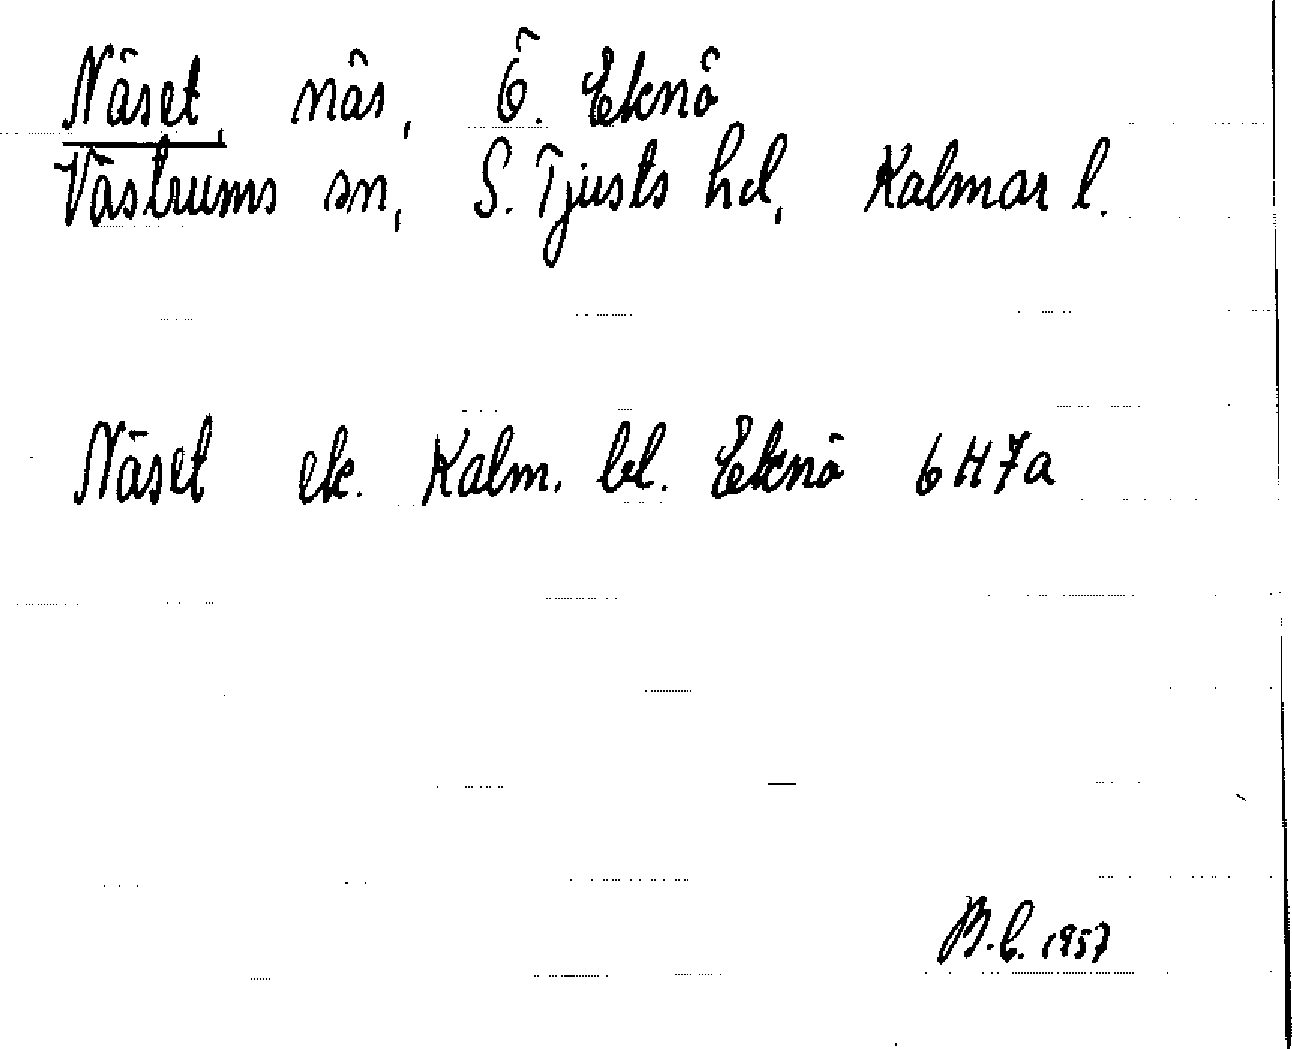 Näset, näs, Ö. Eknö
Västrums sn, S. Tjusts hd, Kalmar l.
Näset ek. Kalm. bl. Eknö 6H7a
B.C. 1957